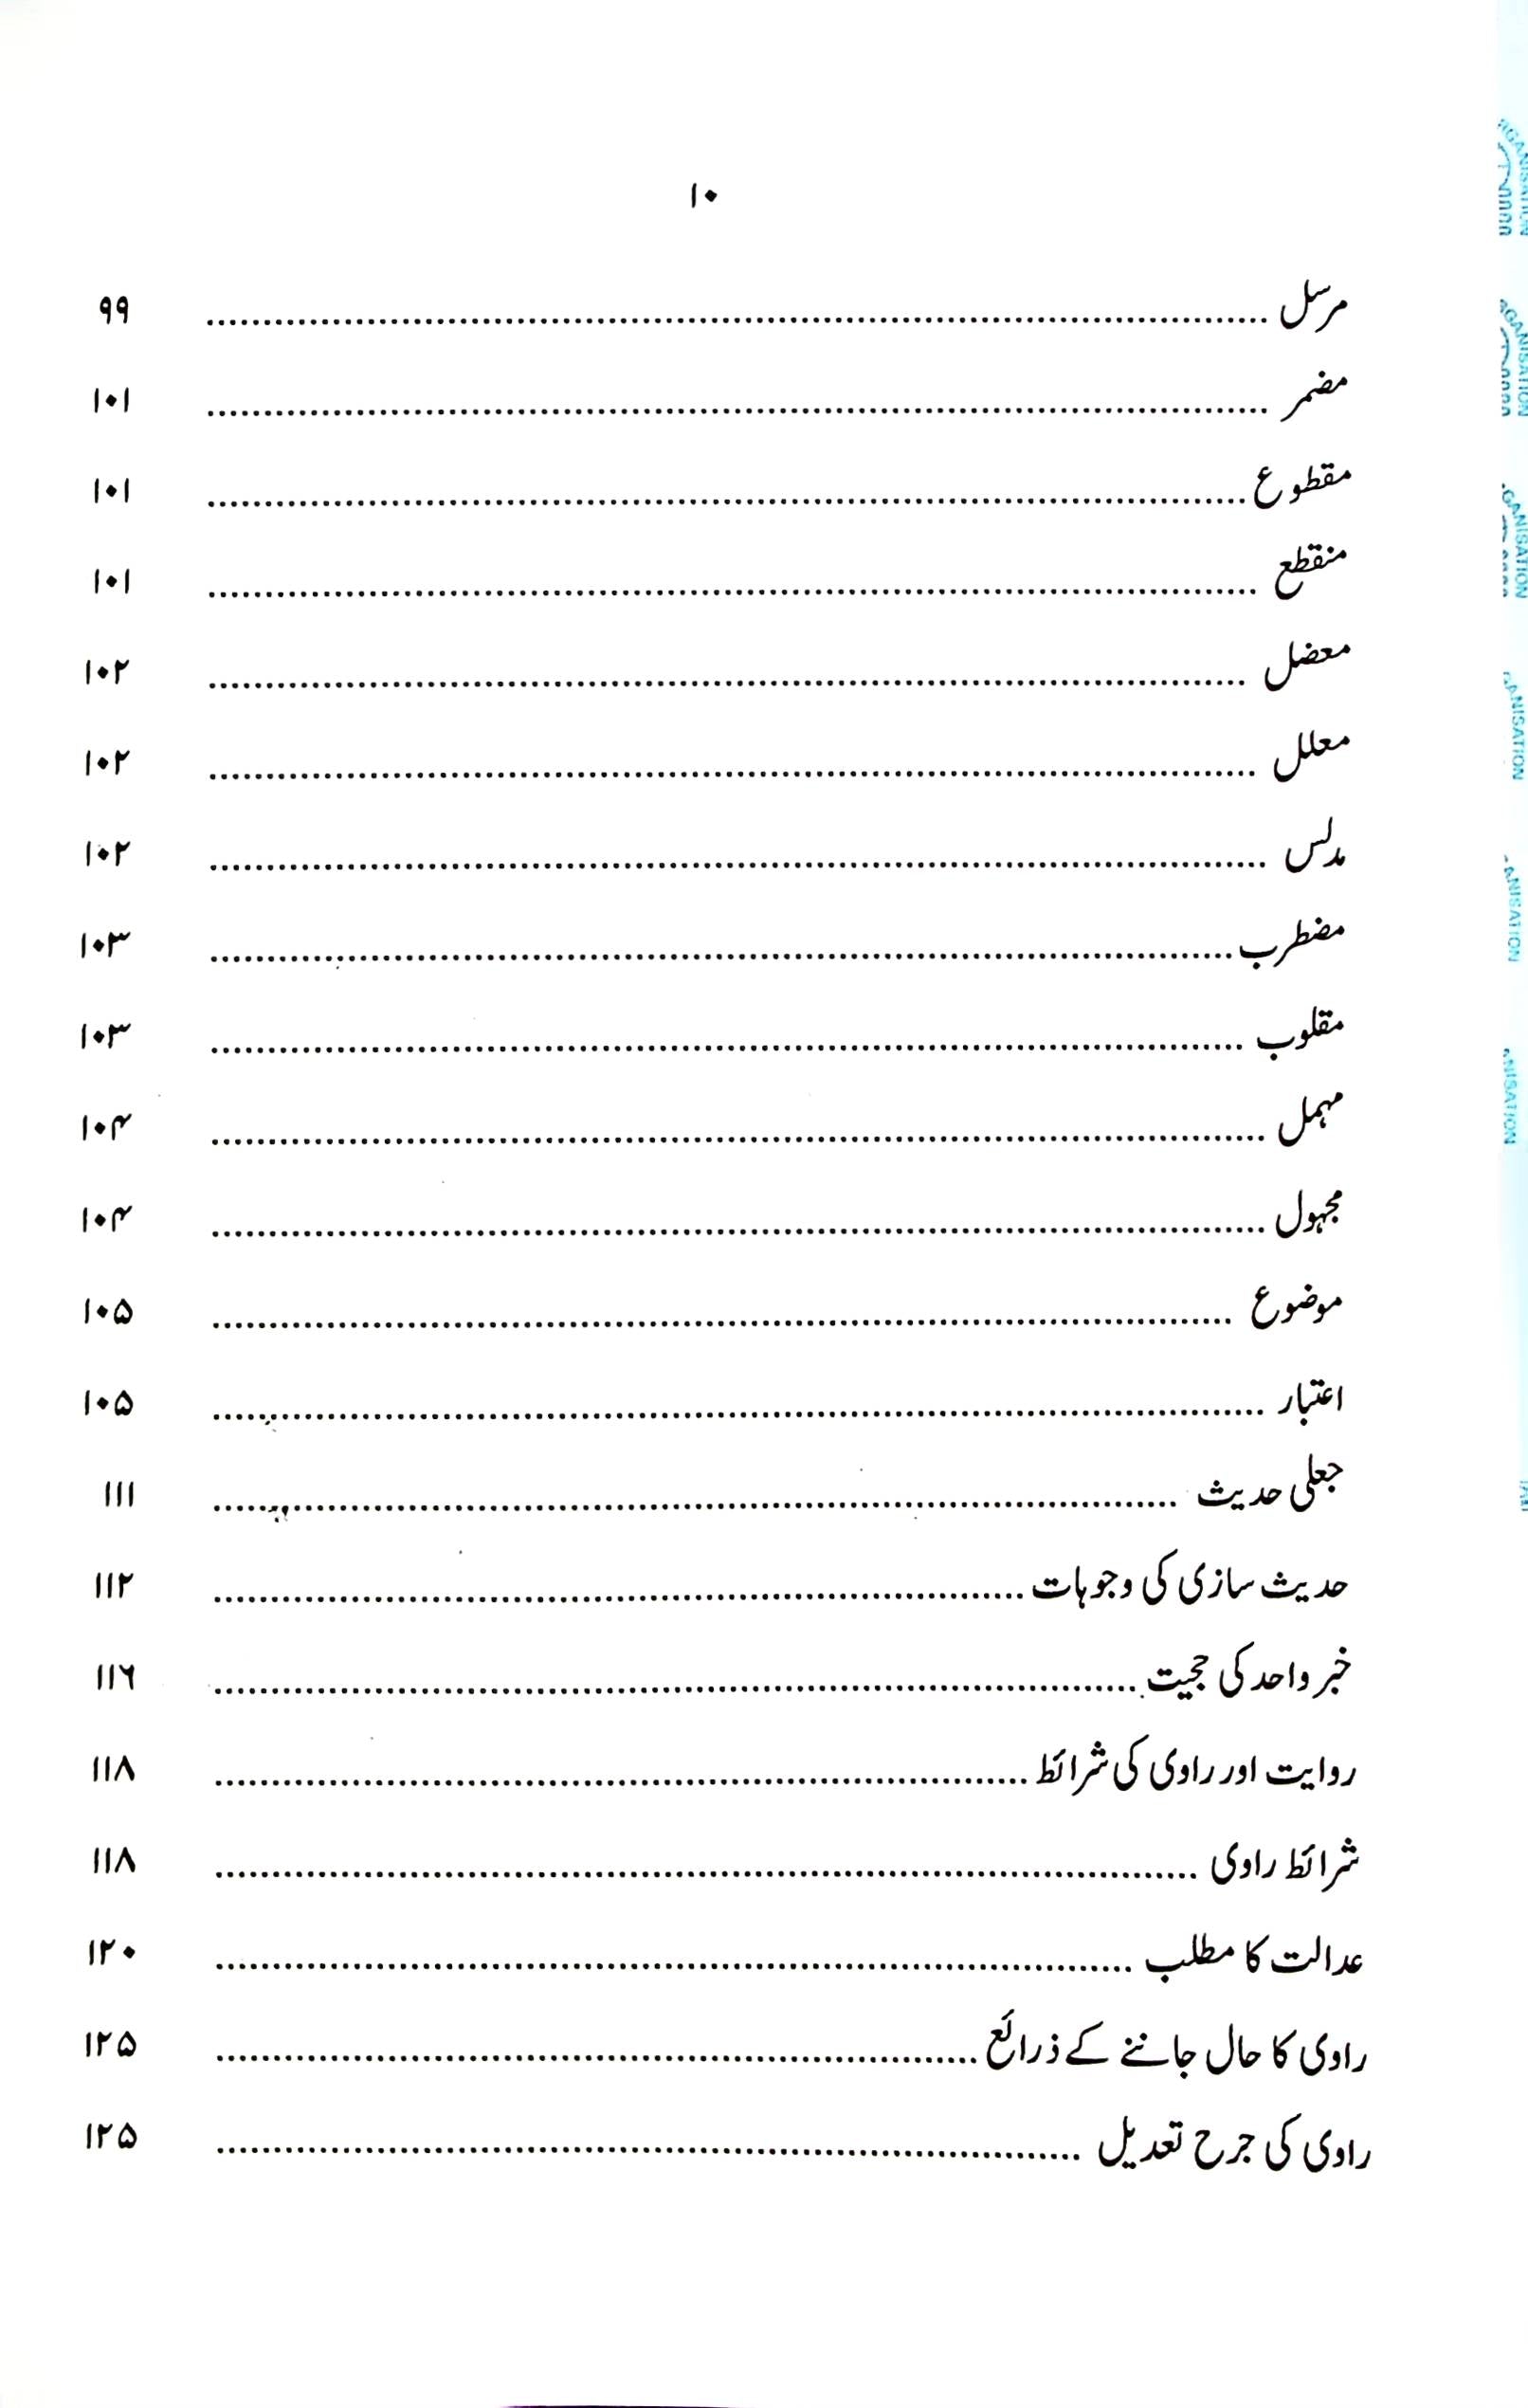 ۱۰
مرسل ........ ۹۹
مضمر ........ ۱۰۱
مقطوع ........ ۱۰۱
منقطع ........ ۱۰۱
معضل ........ ۱۰۲
معلل ........ ۱۰۲
مدلس ........ ۱۰۲
مضطرب ........ ۱۰۳
مقلوب ........ ۱۰۳
مہمل ........ ۱۰۴
مجہول ........ ۱۰۴
موضوع ........ ۱۰۵
اعتبار ........ ۱۰۵
جعلی حدیث ........ ۱۱۱
حدیث سازی کی وجوہات ........ ۱۱۲
خبر واحد کی حجیت ........ ۱۱۶
روایت اور راوی کی شرائط ........ ۱۱۸
شرائط راوی ........ ۱۱۸
عدالت کا مطلب ........ ۱۲۰
راوی کا حال جاننے کے ذرائع ........ ۱۲۵
راوی کی جرح تعدیل ........ ۱۲۵